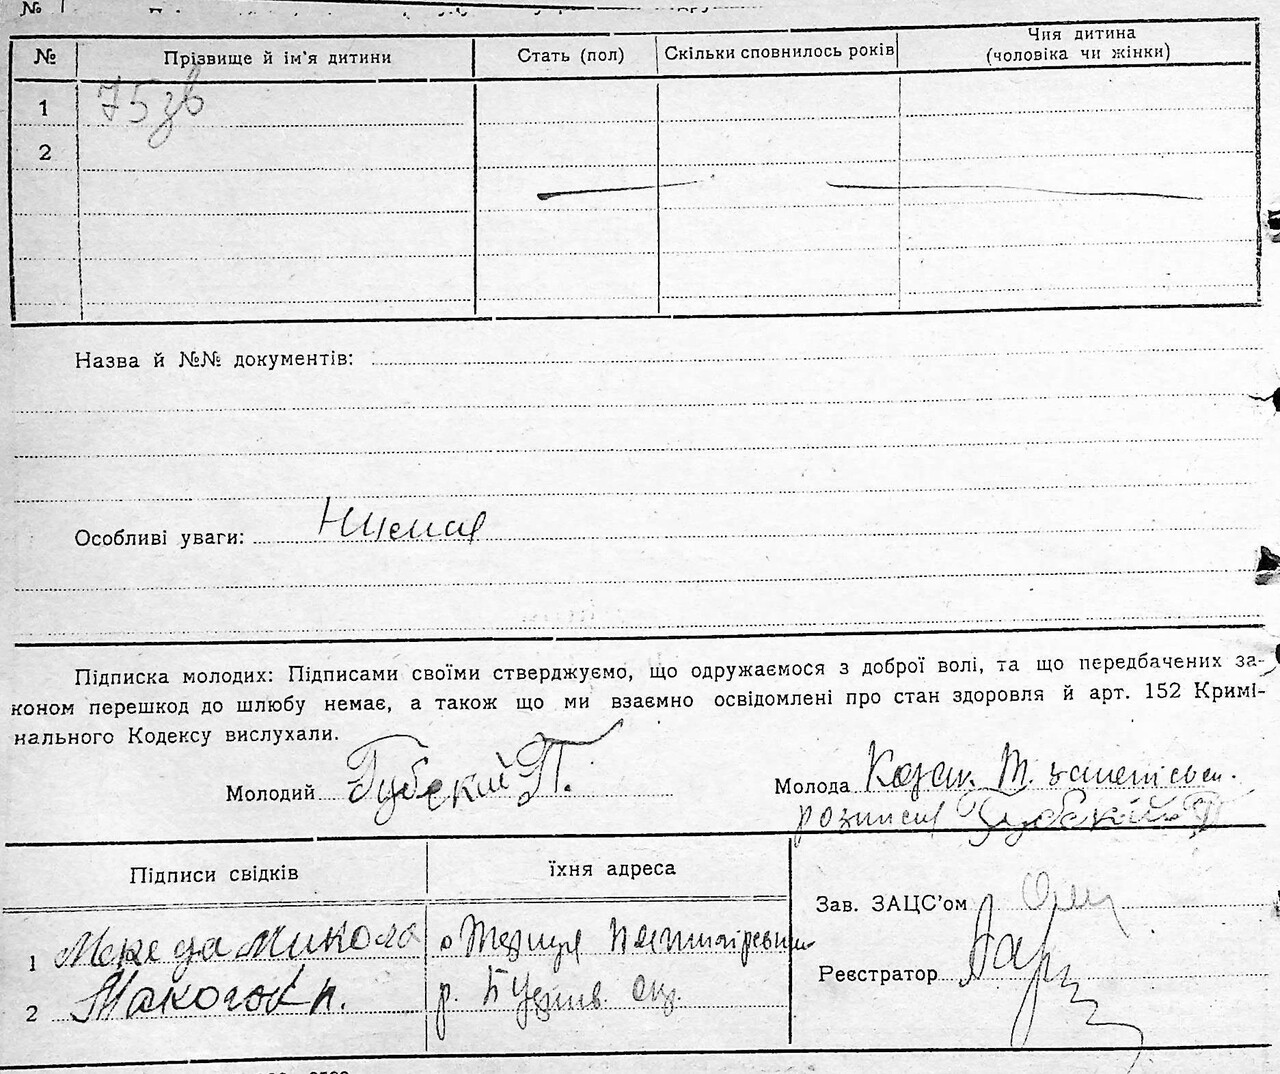 №
№ Прізвище й ім'я дитини Стать (пол) Скільки сповнилось років Чия дитина (чоловіка чи жінки)
1 75зв
2
Назва й №№ документів:
Особливі уваги: Нима
Підписка молодих: Підписами своїми стверджуємо, що одружаємося з доброї волі, та що передбачених за-
коном перешкод до шлюбу немає, а також що ми взаємно освідомлені про стан здоровля й арт. 152 Кримі-
нального Кодексу вислухали.
Молодий Губский П. Молода Козак Т.
Губский П
Підписи свідків їхня адреса
Зав. ЗАЦС'ом
1 Македа Микола
Реєстратор
2 Макогон п. р.